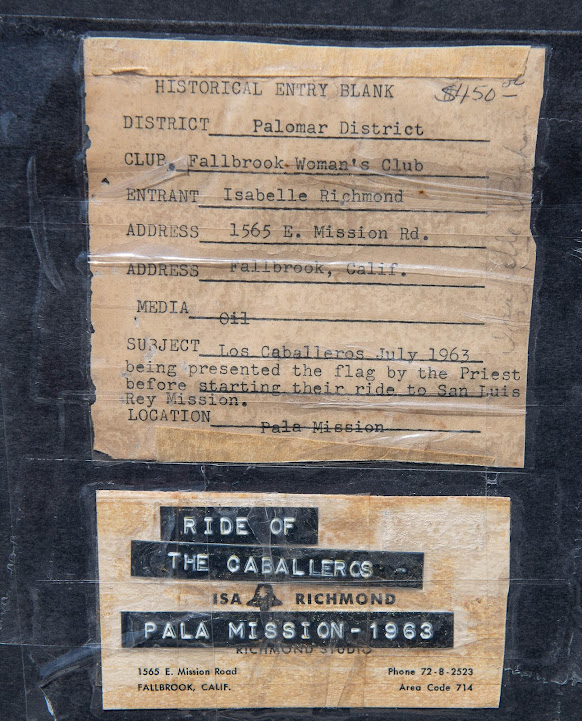 HISTORICAL ENTRY BLANK $450
DISTRICT Palomar District
CLUB. Fallbrook Woman's Club
ENTRANT Isabelle Richmond
ADDRESS 1565 E. Mission Rd.
ADDRESS Fallbrook, Calif.
MEDIA Oil
SUBJECT Los Caballeros July 1963
being presented the flag by the Priest
before starting their ride to San Luis
Rey Mission.
LOCATION Pala Mission
RIDE OF
THE CABALLEROS -
ISA RICHMOND
PALA MISSION-1963
RICHMOND STUDIO
1565 E. Mission Road Phone 72-8-2523
FALLBROOK, CALIF. Area Code 714